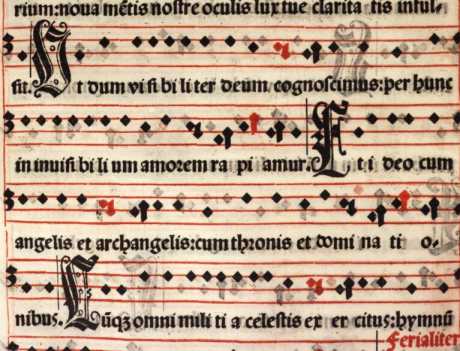 rium:noua mētis nostre oculis lux tue clarita tis inful-
sit. Ut dum visi bi li ter deum cognoscimus:per hunc
in inuisi bi li um amorem ra pi amur. Et i deo cum
angelis et archangelis:cum thronis et domi na ti o-
nibus. Cūqꝫ omni mili ti a celestis ex er citus:hymnū
Ferialiter